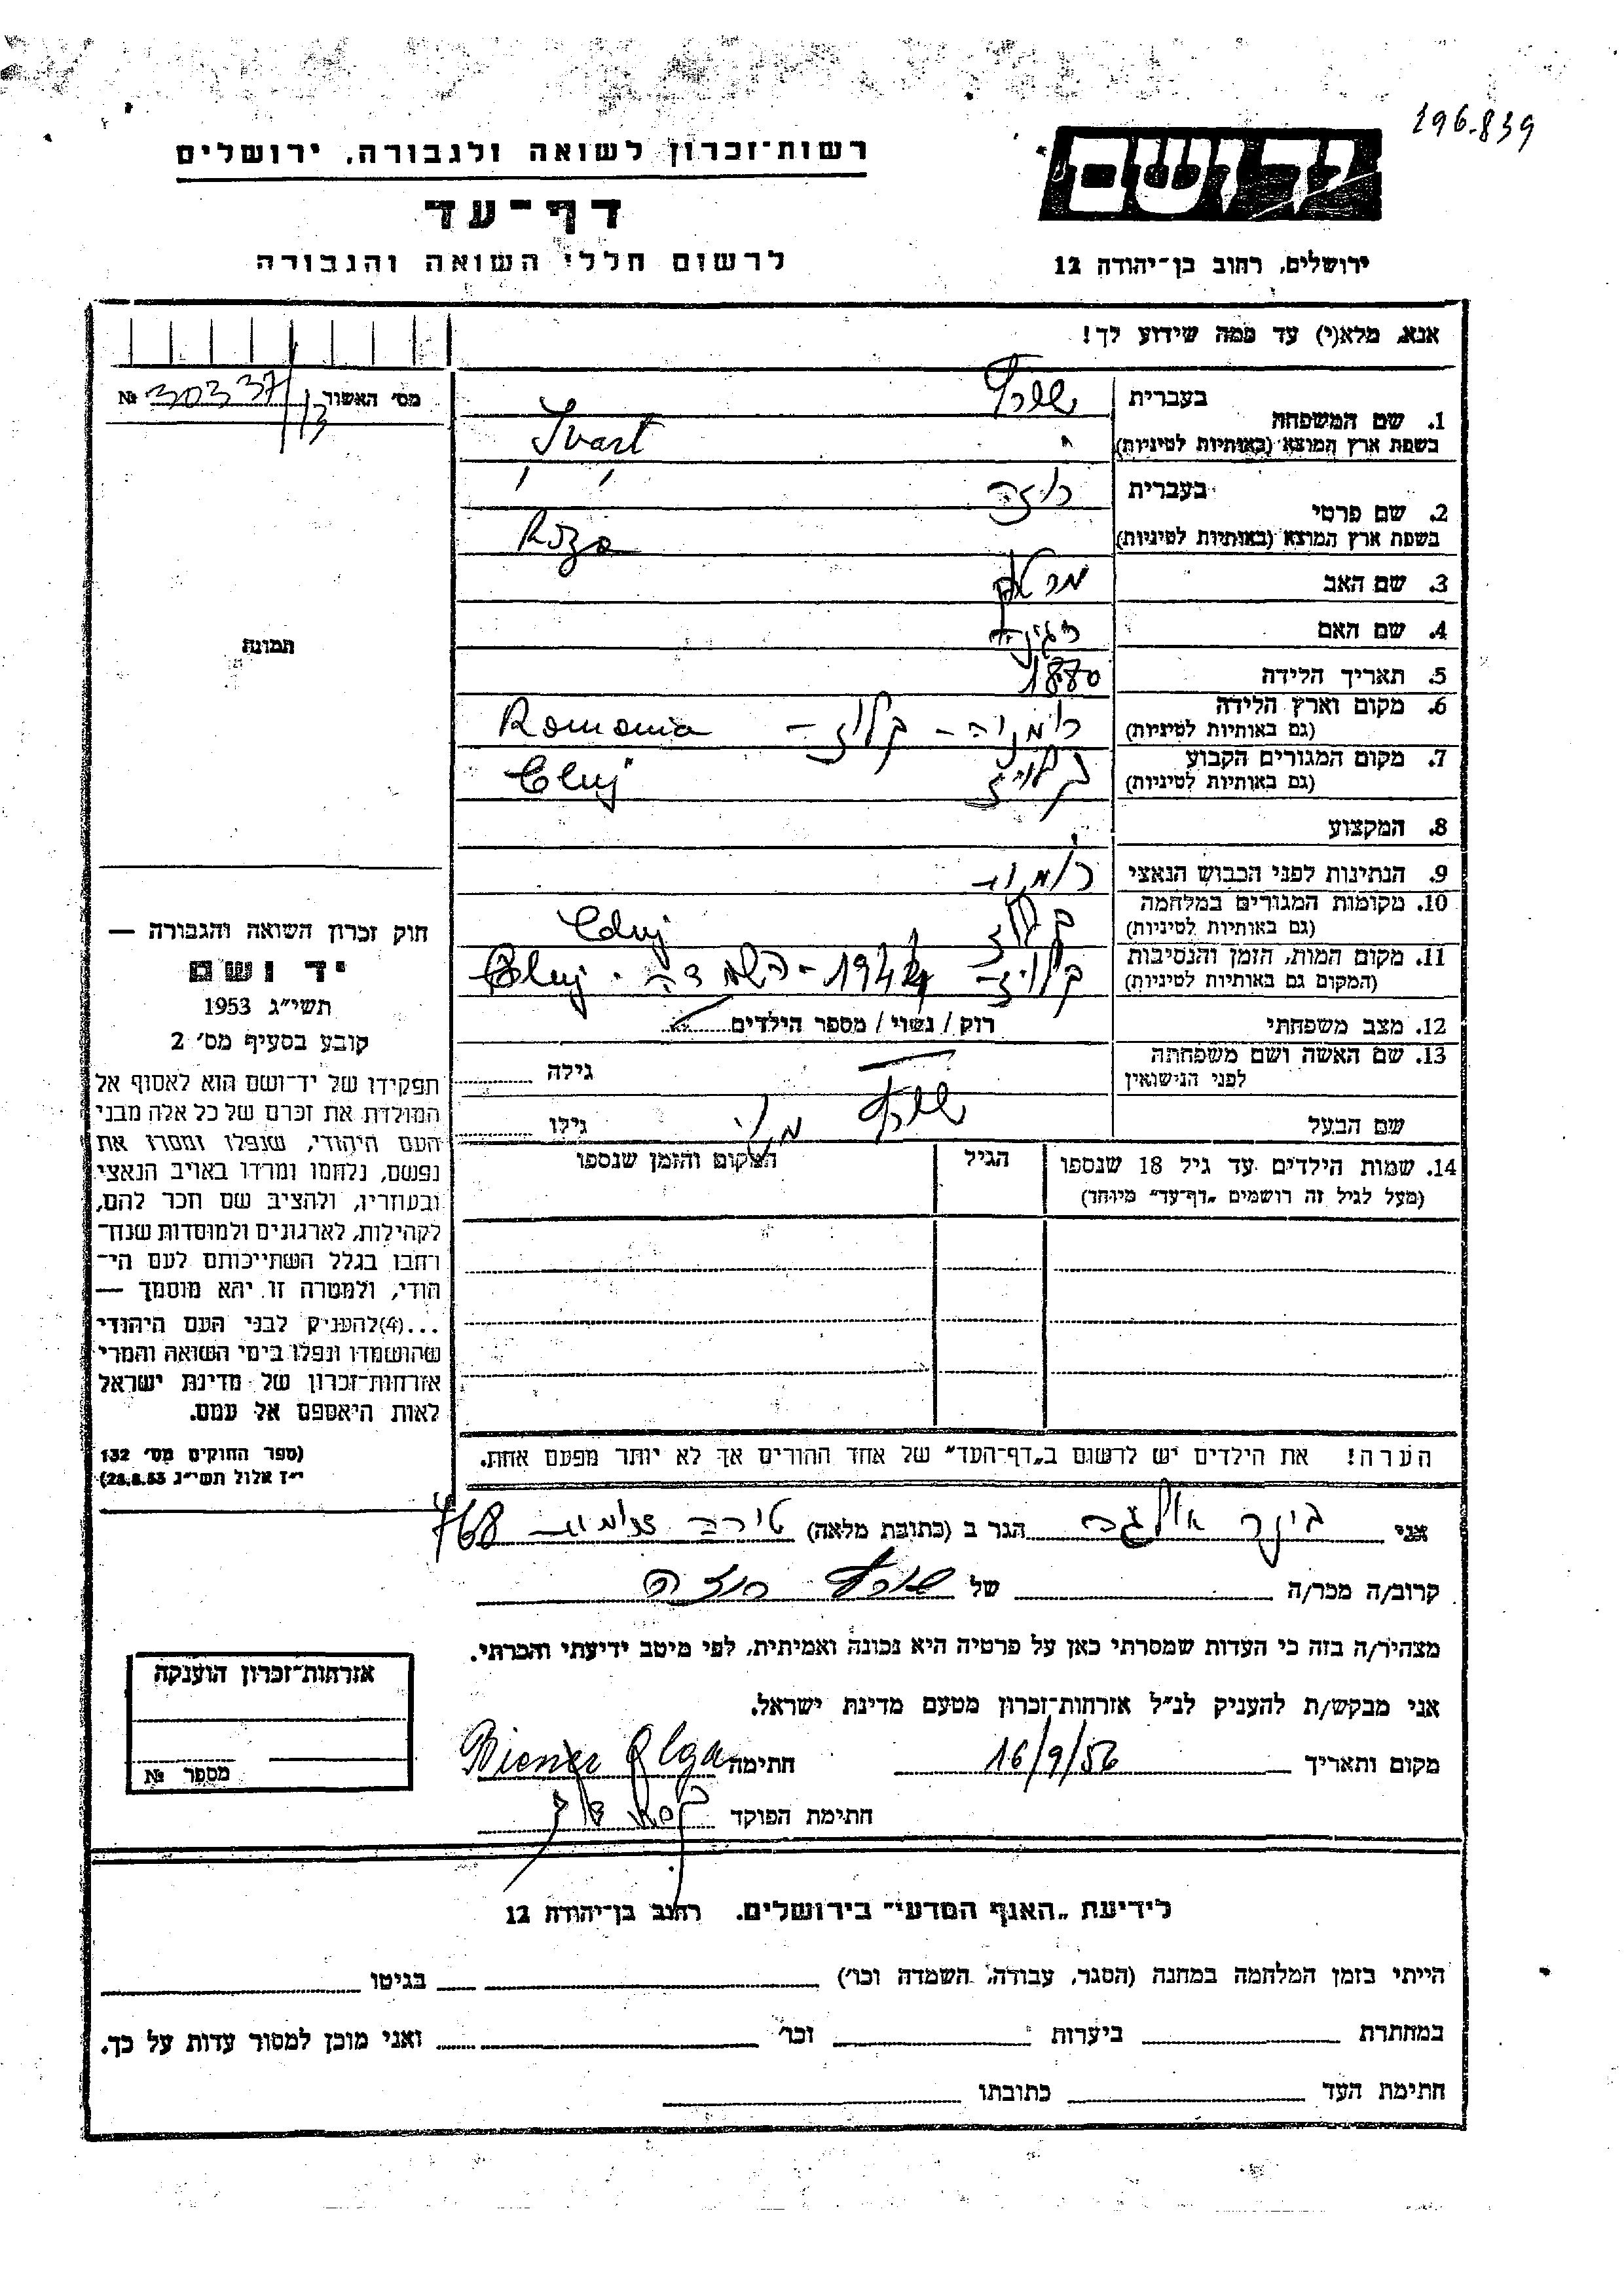 196.839
רשות־זכרון לשואה ולגבורה, ירושלים
דף־עד
לרשום חללי השואה והגבורה
יד ושם
ירושלים, רחוב בן־יהודה 12
אנא, מלא(י) עד כמה שידוע לך!
מס׳ האשור № 30337/13
1. שם המשפחה
בעברית
בשפת ארץ המוצא (באותיות לטיניות) Svart
2. שם פרטי
בעברית רוזה
בשפת ארץ המוצא (באותיות לטיניות) Roza
3. שם האב
4. שם האם רגינה
5. תאריך הלידה 1880
6. מקום וארץ הלידה רומניה - קלוז - Romania
(גם באותיות לטיניות)
7. מקום המגורים הקבוע קלויז Cluj
(גם באותיות לטיניות)
8. המקצוע
9. הנתינות לפני הכבוש הנאצי
10. מקומות המגורים במלחמה קלוז Cluj
(גם באותיות לטיניות)
11. מקום המות, הזמן והנסיבות קלויז - 1944 - השמדה. Cluj
(המקום גם באותיות לטיניות)
12. מצב משפחתי רוק / נשוי / מספר הילדים
13. שם האשה ושם משפחתה
לפני הנישואין
גילה
שם הבעל
גילו
14. שמות הילדים עד גיל 18 שנספו
(מעל לגיל זה רושמים „דף־עד״ מיוחד)
הגיל
המקום והזמן שנספו
הערה! את הילדים יש לרשום ב„דף־העד״ של אחד ההורים אך לא יותר מפעם אחת.
תמונה
חוק זכרון השואה והגבורה —
יד ושם
תשי״ג 1953
קובע בסעיף מס׳ 2
תפקידו של יד־ושם הוא לאסוף אל
המולדת את זכרם של כל אלה מבני
העם היהודי, שנפלו ומסרו את
נפשם, נלחמו ומרדו באויב הנאצי
ובעוזריו, ולהציב שם וזכר להם,
לקהילות, לארגונים ולמוסדות שנח־
רחבו בגלל השתייכותם לעם הי־
הודי, ולמטרה זו יהא מוסמך —
...(4)להעניק לבני העם היהודי
שהושמדו ונפלו בימי השואה והמרי
אזרחות־זכרון של מדינת ישראל
לאות היאספם אל עמם.
(ספר החוקים מס׳ 132
י״ז אלול תשי״ג 28.8.53)
אני בינר אולגה הגר ב (כתובת מלאה) טירה 768
קרוב/ה מכר/ה של רוזה
מצהיר/ה בזה כי העדות שמסרתי כאן על פרטיה היא נכונה ואמיתית, לפי מיטב ידיעתי והכרתי.
אני מבקש/ת להעניק לנ״ל אזרחות־זכרון מטעם מדינת ישראל.
מקום ותאריך 16/9/56 חתימה Biener Olga
חתימת הפוקד
אזרחות־זכרון הוענקה
מספר №
לידיעת „האגף המדעי״ בירושלים, רחוב בן־יהודה 12
הייתי בזמן המלחמה במחנה (הסגר, עבודה, השמדה וכו׳) בגיטו
במחתרת ביערות וכו׳ ואני מוכן למסור עדות על כך.
חתימת העד כתובתו